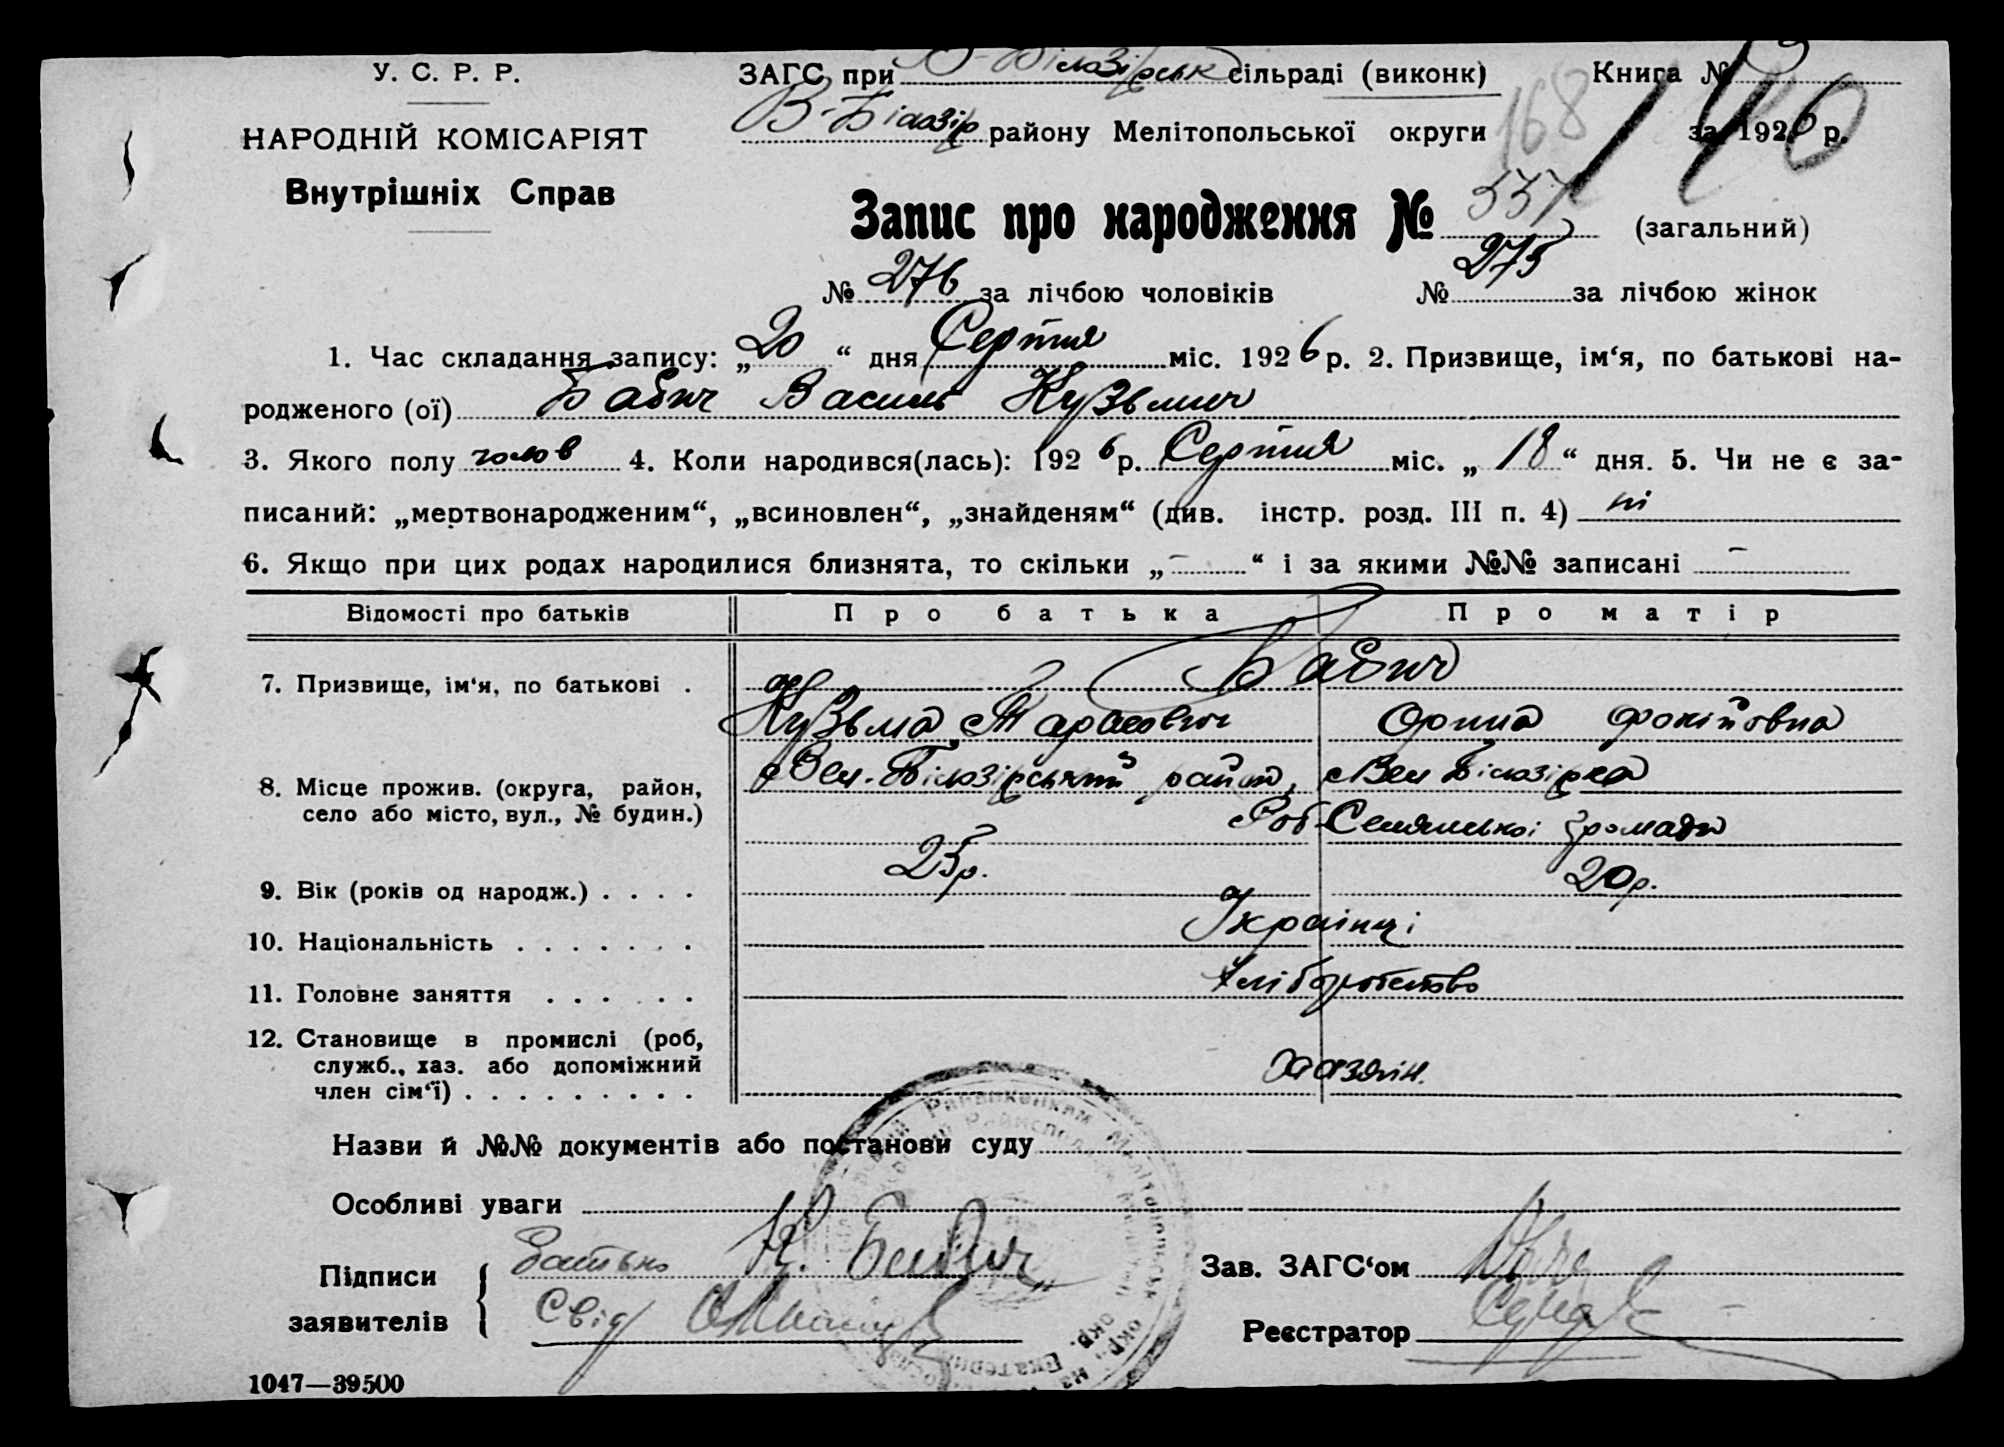 У. С. Р. Р.
НАРОДНІЙ КОМІСАРІЯТ
Внутрішніх Справ
ЗАГС при В-Білозірськ сільраді (виконк)
Книга №
В-Білозір району Мелітопольської округи
168
за 1926 р.
140
Запис про народження № 551 (загальний)
№ 276 за лічбою чоловіків № 275 за лічбою жінок
1. Час складання запису: „20“ дня Серпня міс. 1926 р. 2. Призвище, ім‘я, по батькові на-
родженого (ої) Бабич Василь Кузьмич
3. Якого полу чолов 4. Коли народився(лась): 1926 р. Серпня міс. „18“ дня. 5. Чи не є за-
писаний: „мертвонародженим“, „всиновлен“, „знайденям“ (див. інстр. розд. III п. 4) ні
6. Якщо при цих родах народилися близнята, то скільки „-“ і за якими №№ записані -
Відомості про батьків Про батька Про матір
7. Призвище, ім‘я, по батькові . Бабич
Кузьма Тарасович Орина Фокіївна
8. Місце прожив. (округа, район, село або місто, вул., № будин.) Вел. Білозірський район, Вел Білозірка
Селянської громади
9. Вік (років од народж.) . . . . 25 р. 20 р.
10. Національність . . . . . . . Українці
11. Головне заняття . . . . . . Хліборобство
12. Становище в промислі (роб, служб., хаз. або допоміжний член сім‘ї) . . . . . . . . . Хазяін.
Назви й №№ документів або постанови суду
Особливі уваги
Підписи заявителів { Батько К. Бабич
Свід
Зав. ЗАГС‘ом
Реєстратор
1047—39500